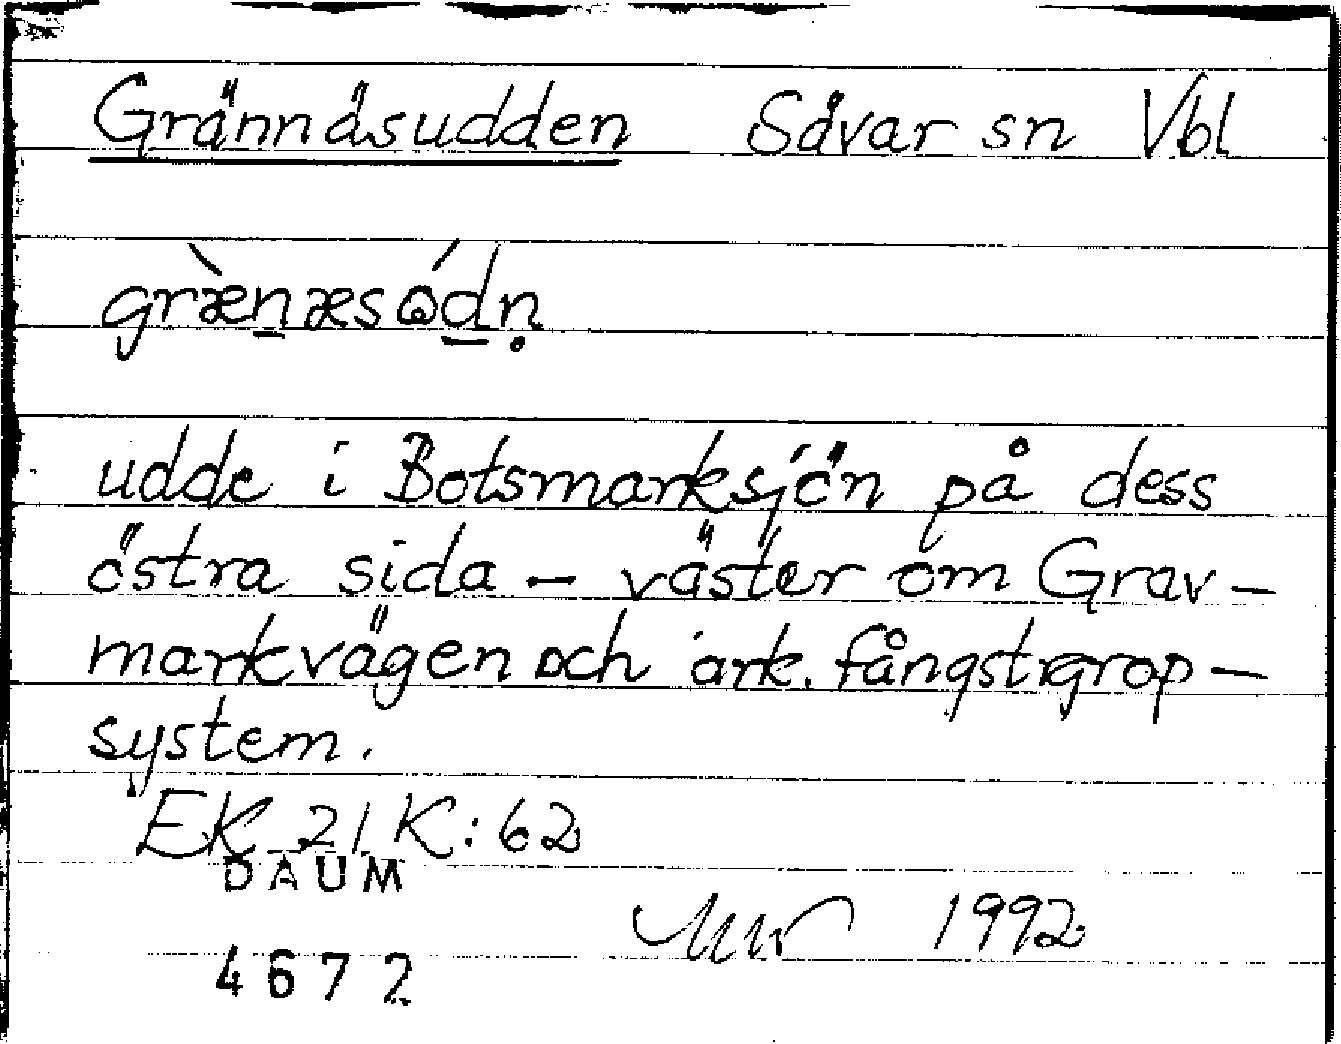 Grännäsudden Sävar sn Vbl
græ̀n̲æsɷ́d̲n̥
udde i Botsmarksjön på dess
östra sida – väster om Grav-
markvägen och ark. fångstgrop-
system.
EK 21 K:62
DAUM
1992
4672